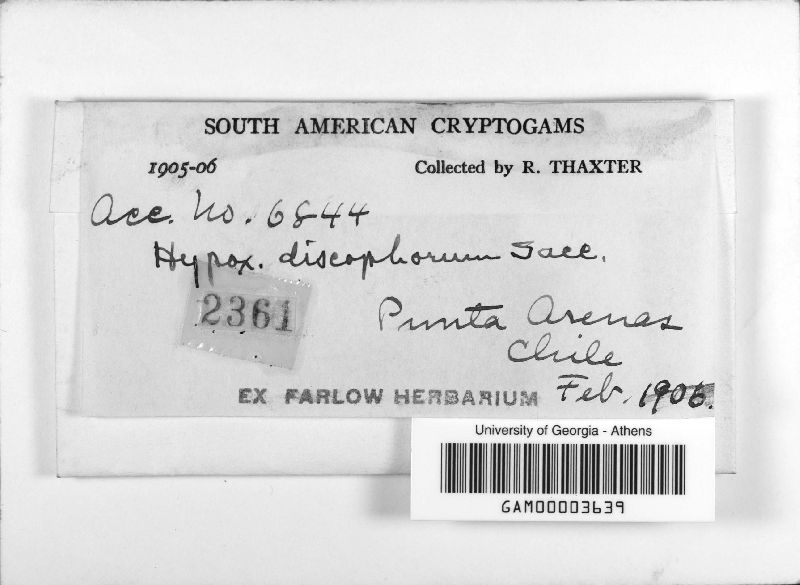 SOUTH AMERICAN CRYPTOGAMS
1905-06 Collected by R. THAXTER
Acc. No. 6844
Hypox. discophorum Sacc.
2361
Punta Arenas
Chile
Feb. 1906.
EX FARLOW HERBARIUM
University of Georgia - Athens
GAM00003639